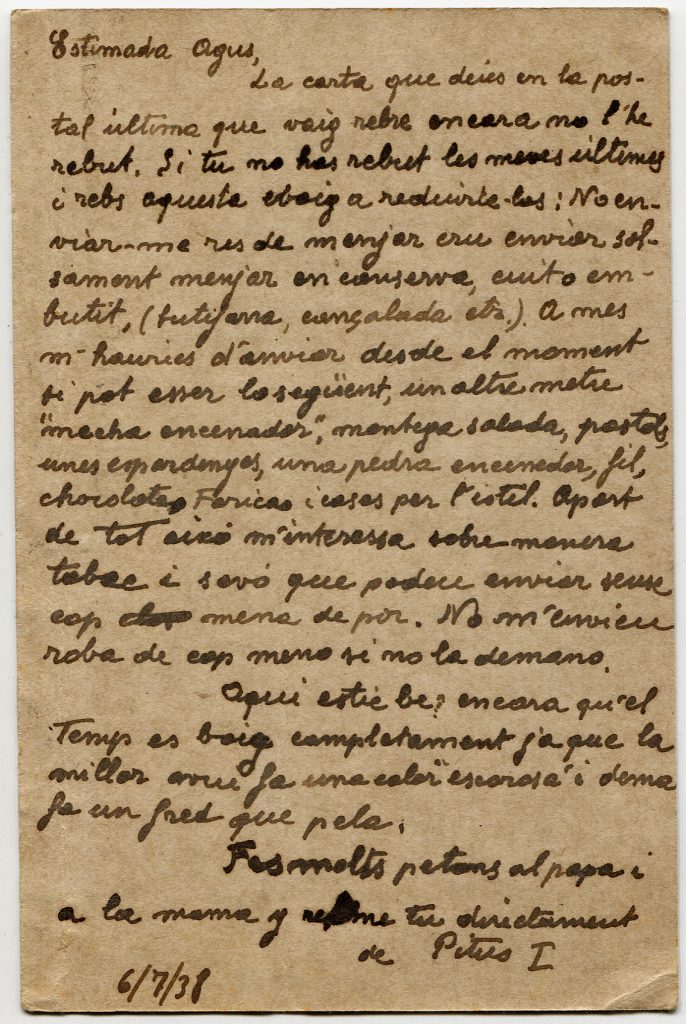 Estimada Agus,
La carta que deies en la pos-
tal última que vaig rebre encara no l'he
rebut. Si tu no has rebut les meves últimes
i rebs aquesta vaig a reduirte-las: No en-
viar-me res de menjar cru enviar sol-
sament menjar en conserva, cuit o em-
butit, (butifarra, cançalada etz.). A mes
m-hauries d'anviar desde el moment
si pot esser lo següent, un altre metre
"mecha encenador", mantega salada, pastels,
unes espardenyes, una pedra encenedor, fil,
chocolate, Farica i coses per l'istil. Apart
de tot aixó m'interessa sobre manera
tabac i savó que podeu enviar sense
cap mena de pòr. No m'envieu
roba de cap mena si no la demano.
Aquí estic be; encara qu'el
Temps es boig completament ja que la
millor avui fa una calor "escorosa" i dema
fa un fred que pela.
Fes molts petons al papa i
a la mama y tu directament
de Pitus I
6/7/38